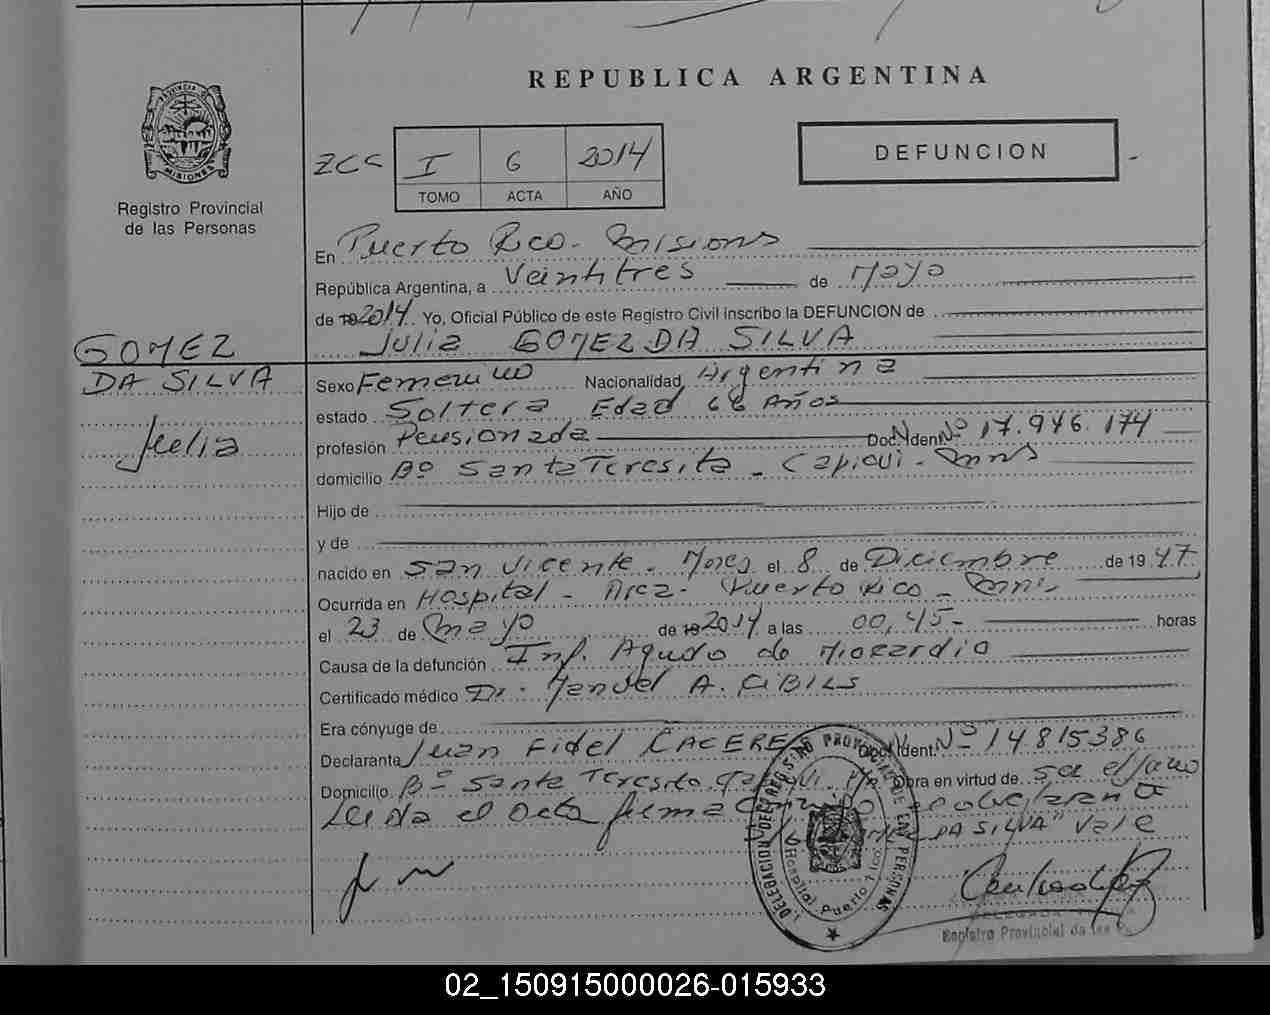 REPUBLICA ARGENTINA
PROVINCIA DE
MISIONES
Registro Provincial
de las Personas
I 6 2014
TOMO ACTA AÑO
DEFUNCION
En Puerto Rico - Misions
República Argentina, a Veintitres de Mayo
de 19 2014 Yo, Oficial Público de este Registro Civil inscribo la DEFUNCION de
Julia GOMEZ DA SILVA
GOMEZ
DA SILVA
Julia
Sexo Femenino Nacionalidad Argentina
estado Soltera Edad 66 Años
profesión Pensionada Doc. Iden. Nº 17.946.174
domicilio Bº Santa Teresita - Capiovi - Mnes
Hijo de
y de
nacido en San Vicente - Mnes el 8 de Diciembre de 1947
Ocurrida en Hospital - Area - Puerto Rico - Mnes
el 23 de Mayo de 19 2014 a las 00,45 - horas
Causa de la defunción Inf. Agudo de Miocardio
Certificado médico Dr. Manuel A. CIBILS
Era cónyuge de
Declarante Juan Fidel CACERE Doc. Ident. Nº 14815386
Domicilio Bº Santa Teresita Obra en virtud de ser el
Leida el Acta firma declarante
DA SILVA" Vale
DELEGACION DEL REGISTRO PROVINCIAL DE LAS PERSONAS
Hospital Puerto Rico
DELEGADA
Registro Provincial de las
02_150915000026-015933